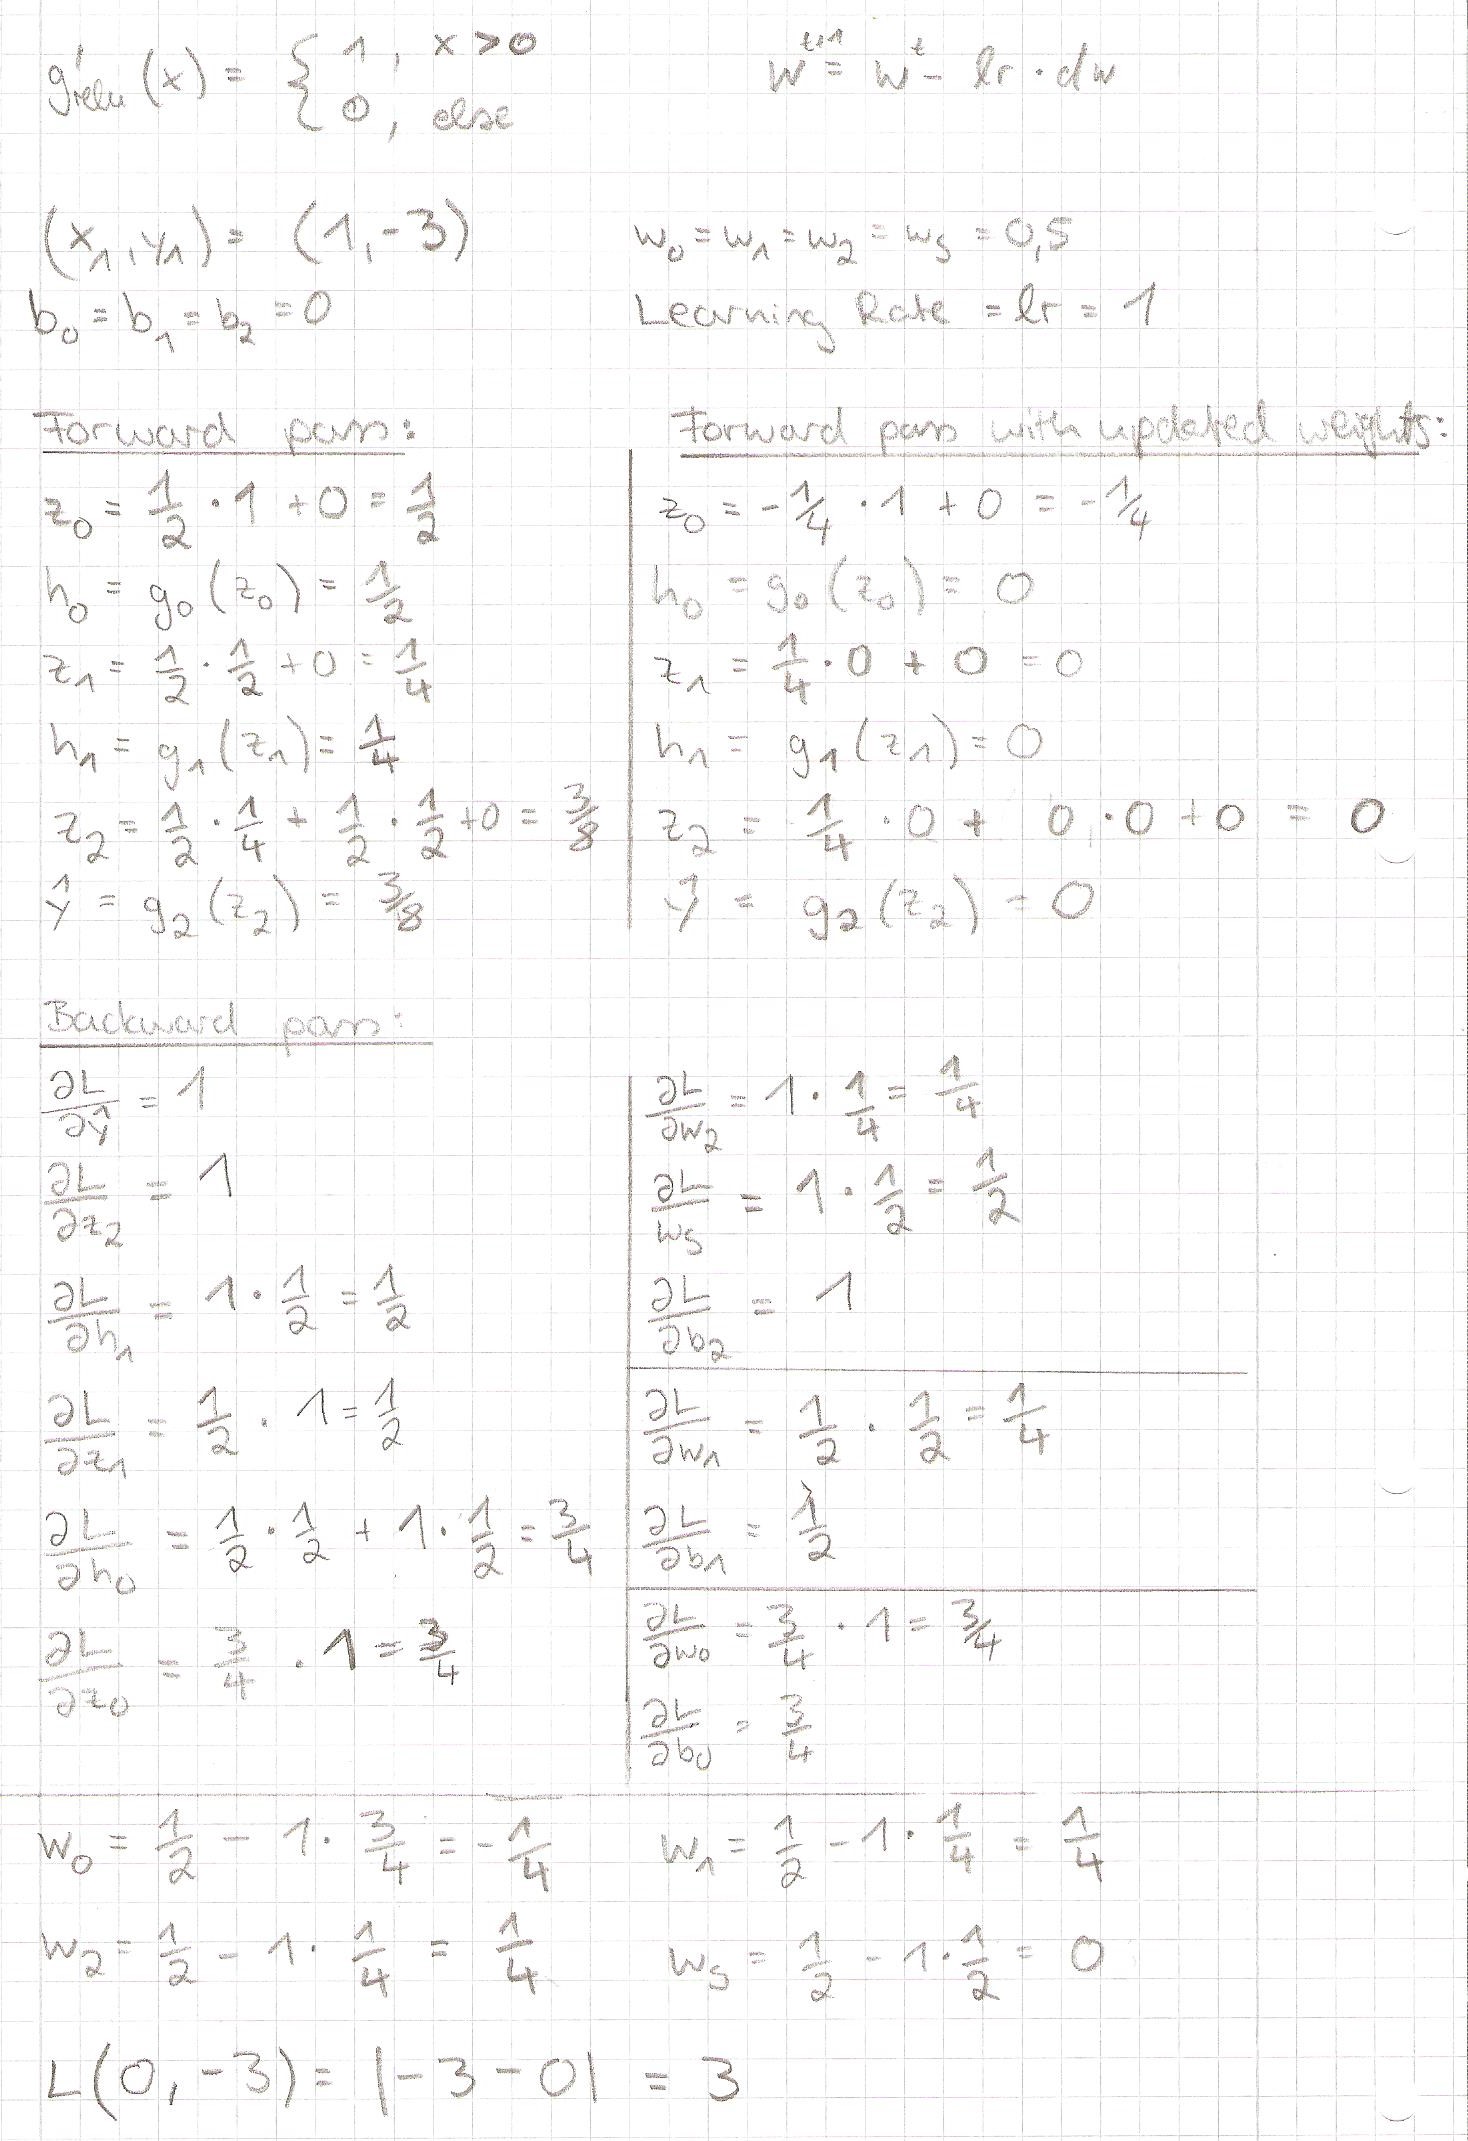 g'relu (x) = { 1, x > 0
0, else
w^{t+1} = w^t - lr · dw
(x₁, y₁) = (1, -3)
w₀ = w₁ = w₂ = w_s = 0,5
b₀ = b₁ = b₂ = 0
Learning Rate = lr = 1
Forward pass:
z₀ = 1/2 · 1 + 0 = 1/2
h₀ = g₀(z₀) = 1/2
z₁ = 1/2 · 1/2 + 0 = 1/4
h₁ = g₁(z₁) = 1/4
z₂ = 1/2 · 1/4 + 1/2 · 1/2 + 0 = 3/8
ŷ = g₂(z₂) = 3/8
Forward pass with updated weights:
z₀ = -1/4 · 1 + 0 = -1/4
h₀ = g₀(z₀) = 0
z₁ = 1/4 · 0 + 0 = 0
h₁ = g₁(z₁) = 0
z₂ = 1/4 · 0 + 0 · 0 + 0 = 0
ŷ = g₂(z₂) = 0
Backward pass:
∂L/∂ŷ = 1
∂L/∂z₂ = 1
∂L/∂h₁ = 1 · 1/2 = 1/2
∂L/∂z₁ = 1/2 · 1 = 1/2
∂L/∂h₀ = 1/2 · 1/2 + 1 · 1/2 = 3/4
∂L/∂z₀ = 3/4 · 1 = 3/4
∂L/∂w₂ = 1 · 1/4 = 1/4
∂L/w_s = 1 · 1/2 = 1/2
∂L/∂b₂ = 1
∂L/∂w₁ = 1/2 · 1/2 = 1/4
∂L/∂b₁ = 1/2
∂L/∂w₀ = 3/4 · 1 = 3/4
∂L/∂b₀ = 3/4
w₀ = 1/2 - 1 · 3/4 = -1/4
w₁ = 1/2 - 1 · 1/4 = 1/4
w₂ = 1/2 - 1 · 1/4 = 1/4
w_s = 1/2 - 1 · 1/2 = 0
L(0, -3) = |-3 - 0| = 3